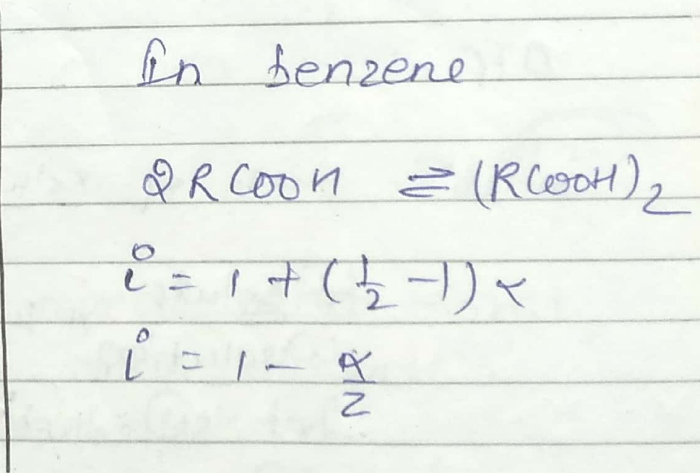 In benzene
2RCOOH ⇌ (RCOOH)₂
i = 1 + (1/2 - 1) α
i = 1 - α/2